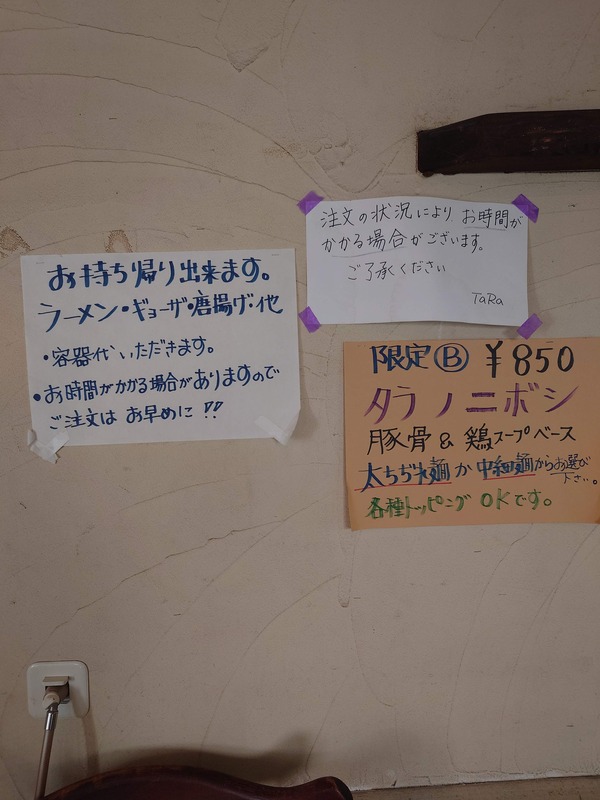 お持ち帰り出来ます。
ラーメン・ギョーザ・唐揚げ・他
・容器代いただきます。
・お時間がかかる場合がありますので
ご注文は お早めに!!
注文の状況により お時間が
かかる場合がございます。
ご了承ください
TaRa
限定 Ⓑ ¥850
タラノニボシ
豚骨 & 鶏スープベース
太ちぢれ麺か 中細麺からお選び下さい。
各種トッピング OKです。